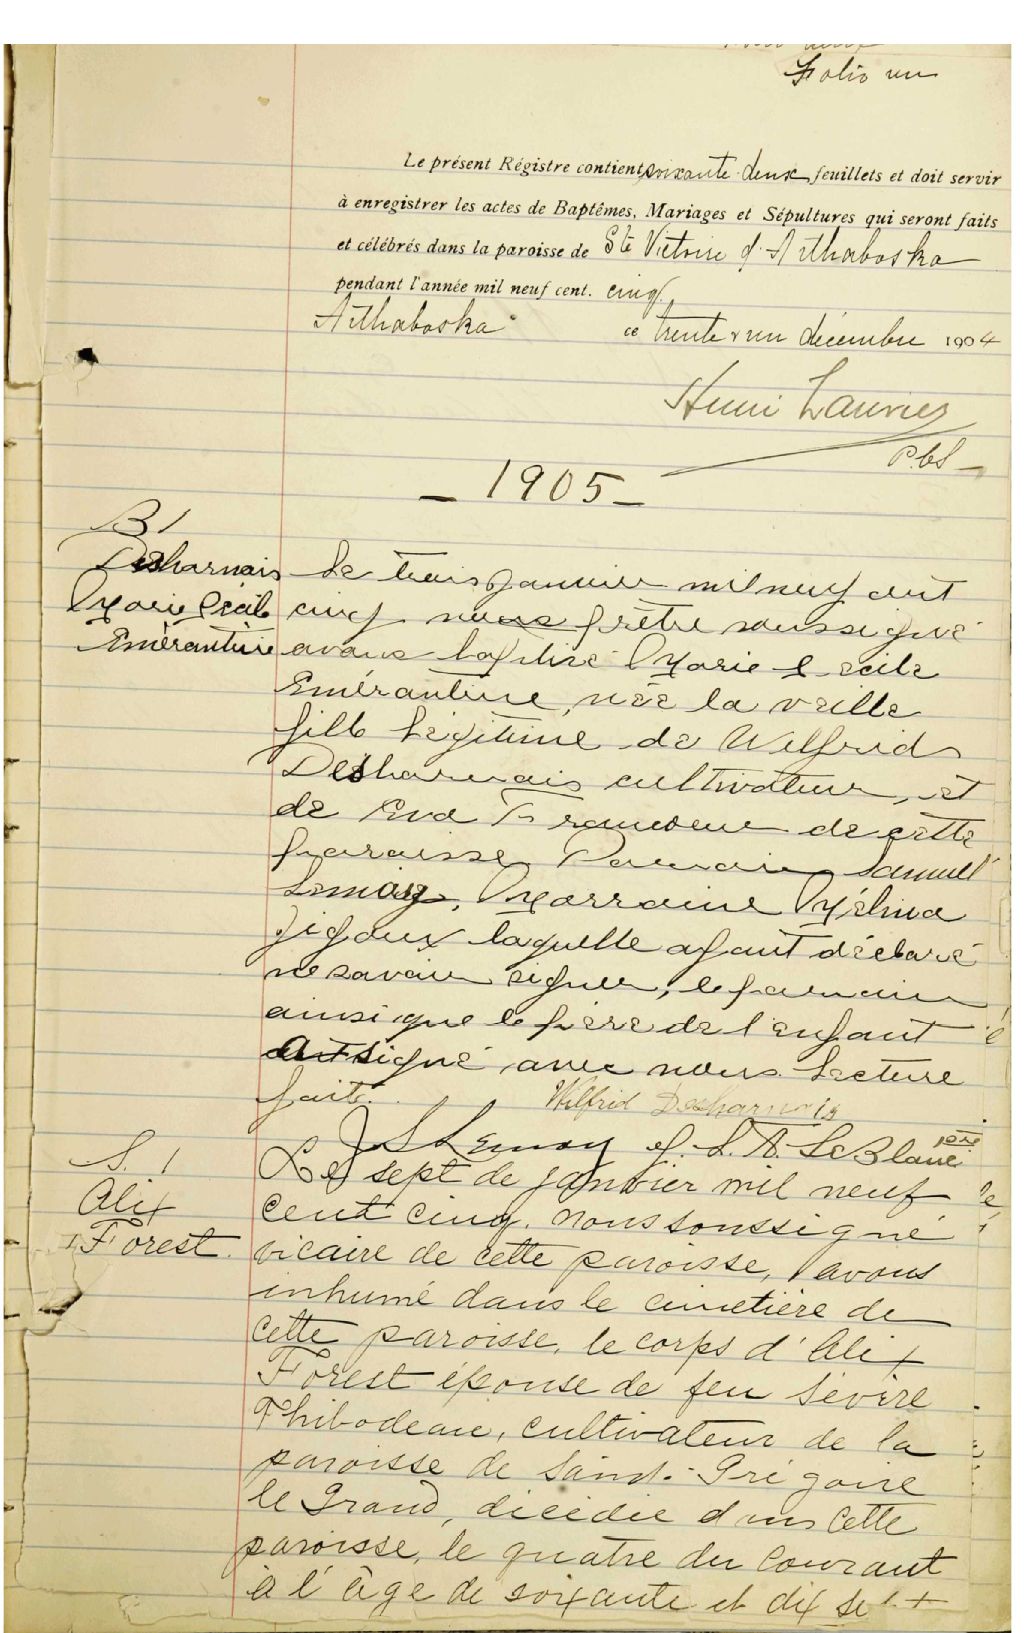 Folio un
Le présent Régistre contient soixante deux feuillets et doit servir
à enregistrer les actes de Baptêmes, Mariages et Sépultures qui seront faits
et célébrés dans la paroisse de Ste Victoire d'Arthabaska
pendant l'année mil neuf cent. cinq
Arthabaska ce trente & un décembre 1904
Henri Laurier
P.C.S
- 1905 -
B 1
Desharnais
Marie Cécile
Emérantine
Le trois janvier mil neuf cent
cinq nous prêtre soussigné
avons baptisé Marie Cécile
Emérantine, née la veille
fille légitime de Wilfrid
Desharnais cultivateur, et
de Eva Francoeur de cette
paroisse. Parrain Samuel
Lemay, Marraine Mélina
Gigoux laquelle ayant déclaré
ne savoir signer, le parrain
ainsi que le père de l'enfant
ont signé avec nous. Lecture
faite.
Wilfrid Desharnais
J S Lemay J. L. A. LeBlanc ptre
S. 1
Alix
Forest.
Le sept de janvier mil neuf
cent cinq. nous soussigné
vicaire de cette paroisse, avons
inhumé dans le cimetière de
cette paroisse, le corps d'Alix
Forest épouse de feu Sévère
Thibodeau, cultivateur de la
paroisse de Saint-Grégoire
le Grand, décédée dans cette
paroisse, le quatre du courant
à l'âge de soixante et dix sept